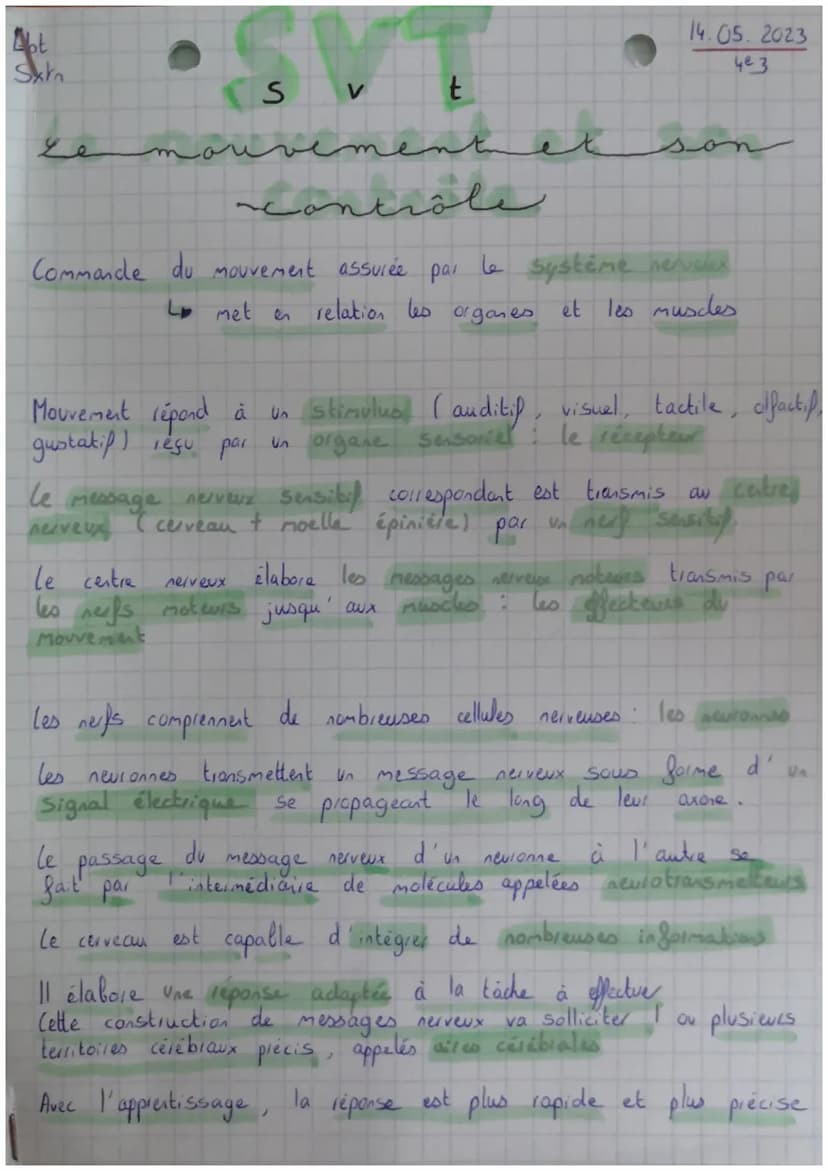 14.05.2023
4e3
SVT
s v t
Le mouvement et son
contrôle
Commande du mouvement assurée par le système nerveux
↳ met en relation les organes et les muscles
Mouvement répond à un stimulus (auditif, visuel, tactile, olfactif,
gustatif) reçu par un organe sensoriel : le récepteur
Le message nerveux sensitif correspondant est transmis au centre
nerveux (cerveau + moelle épinière) par un nerf sensitif.
Le centre nerveux élabore les messages nerveux moteurs transmis par
les nerfs moteurs jusqu'aux muscles : les effecteurs du
mouvement
Les nerfs comprennent de nombreuses cellules nerveuses : les neuronnes
Les neuronnes transmettent un message nerveux sous forme d'un
signal électrique se propageant le long de leur axone.
Le passage du message nerveux d'un neuronne à l'autre se
fait par l'intermédiaire de molécules appelées neurotransmetteurs
Le cerveau est capable d'intégrer de nombreuses informations
Il élabore une réponse adaptée à la tâche à effectuer
Cette construction de messages nerveux va solliciter 1 ou plusieurs
territoires cérébraux précis, appelés aires cérébrales
Avec l'apprentissage, la réponse est plus rapide et plus précise